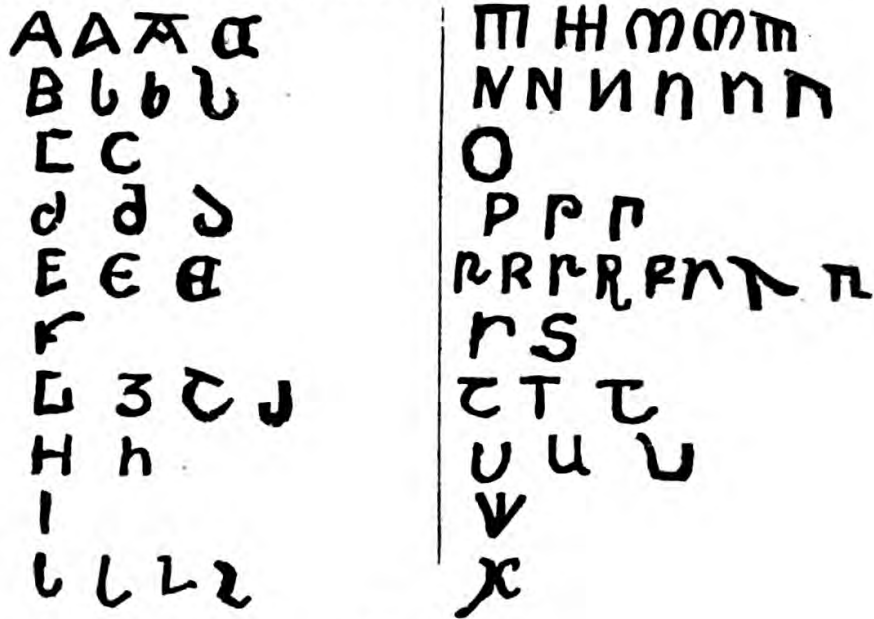 A A A a
B b b b
C C
d d d
E E E
F
G Ʒ G G
H h
I
l l L l
M M M M M
N N N n n n
O
P P P
R R R R R R R R
r S
T T T
U u u
X